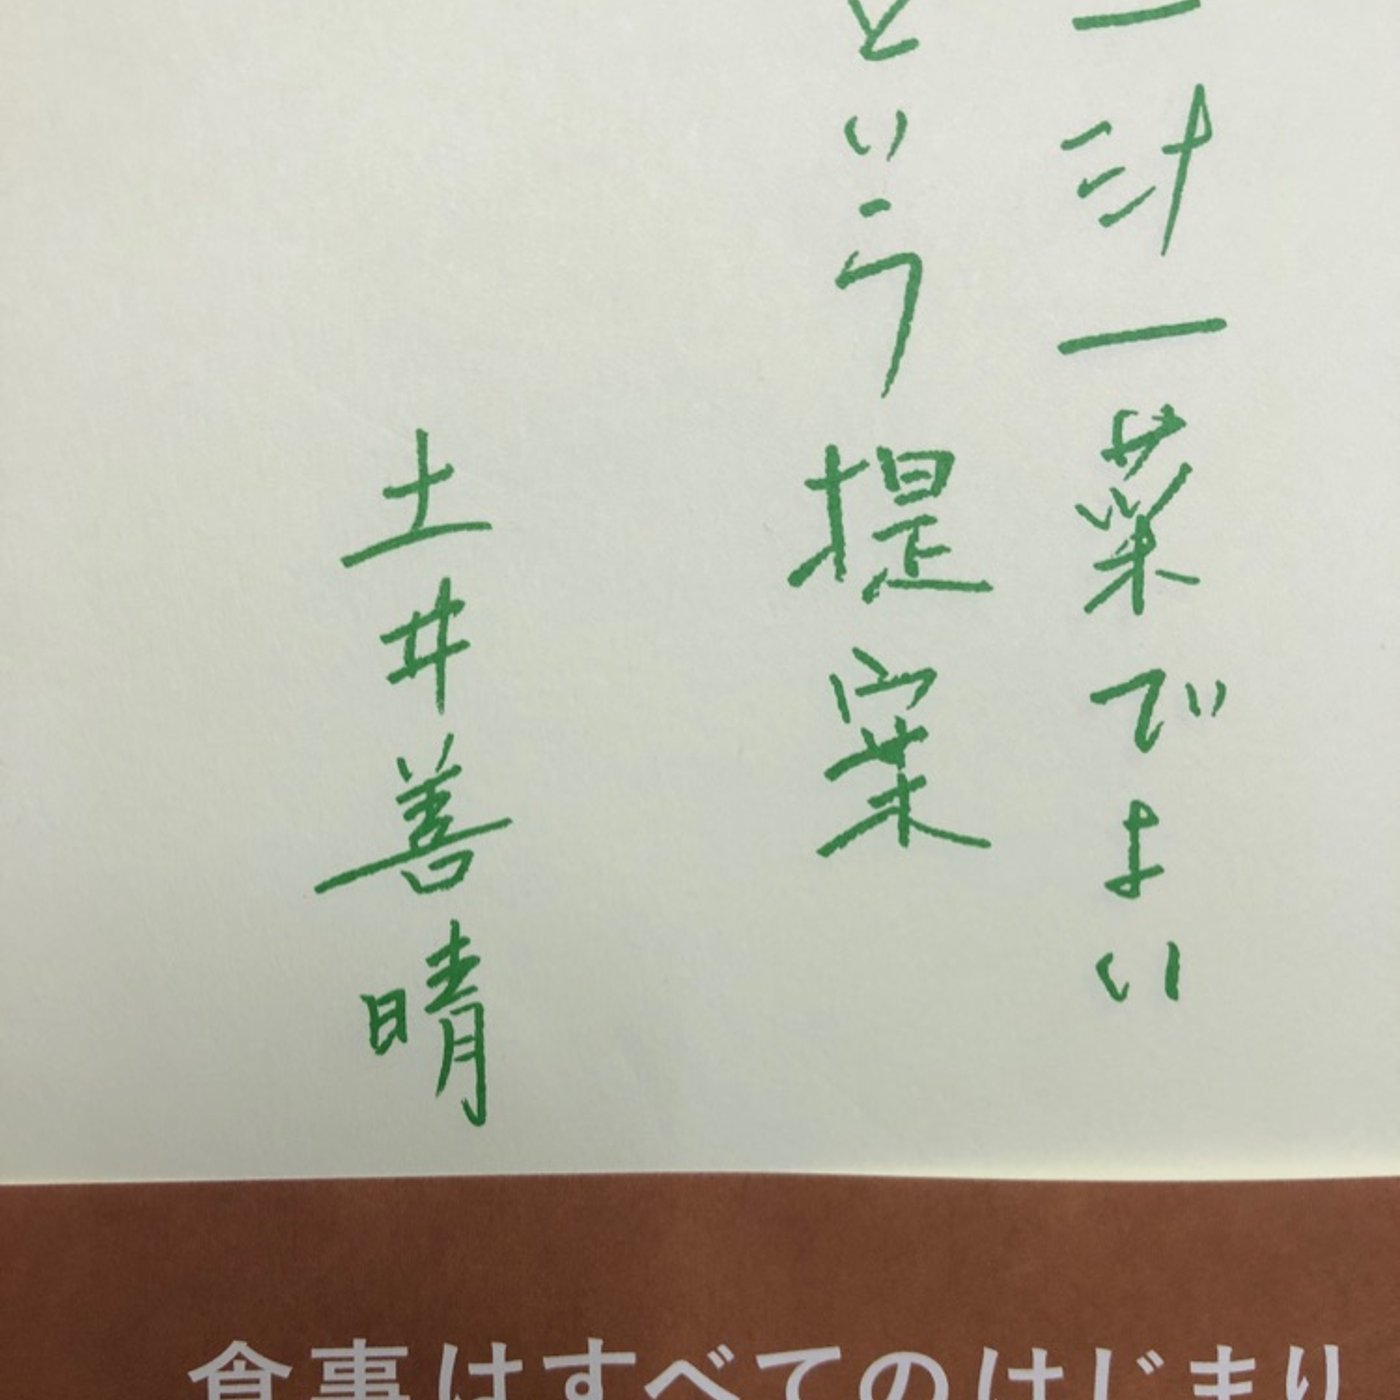 一汁一菜でよい
という提案
土井善晴
食事はすべてのはじまり